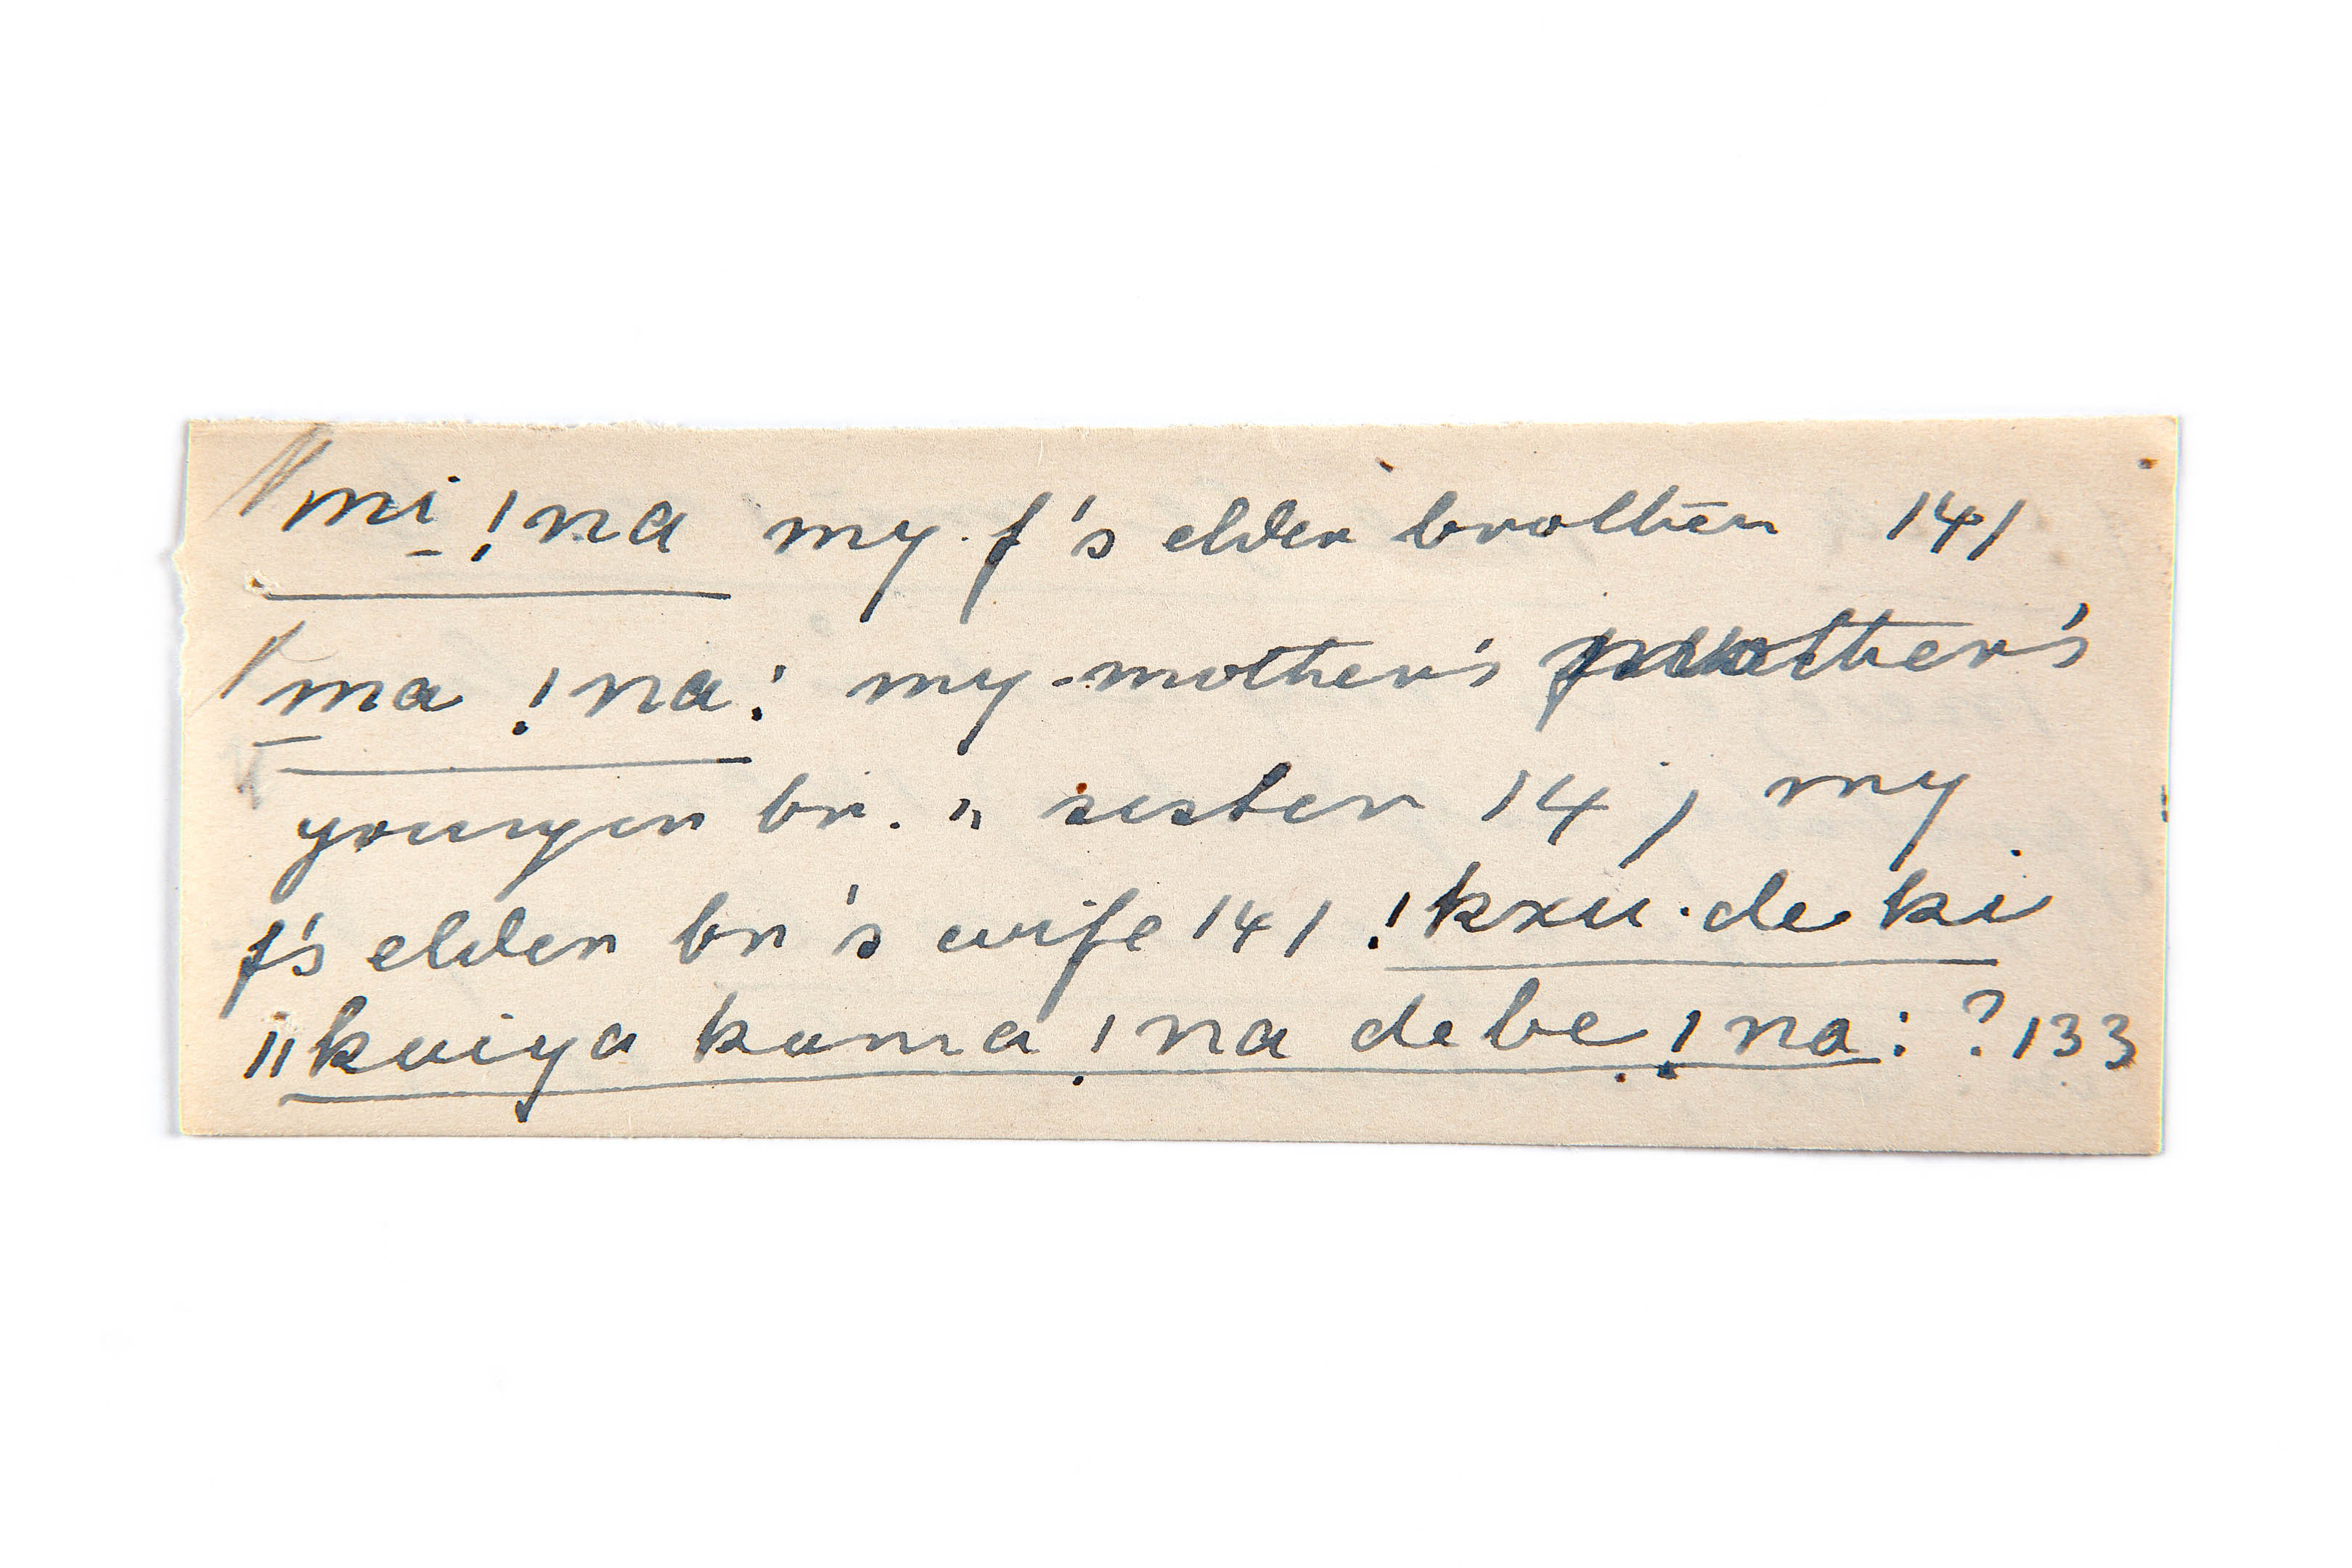 mi !na my f's elder brother 141
ma !na: my mother's
younger br. " sister 141 my
f's elder br's wife 141 !kxu·de ki
‖kuiya kuma !na debe !na: ? 133